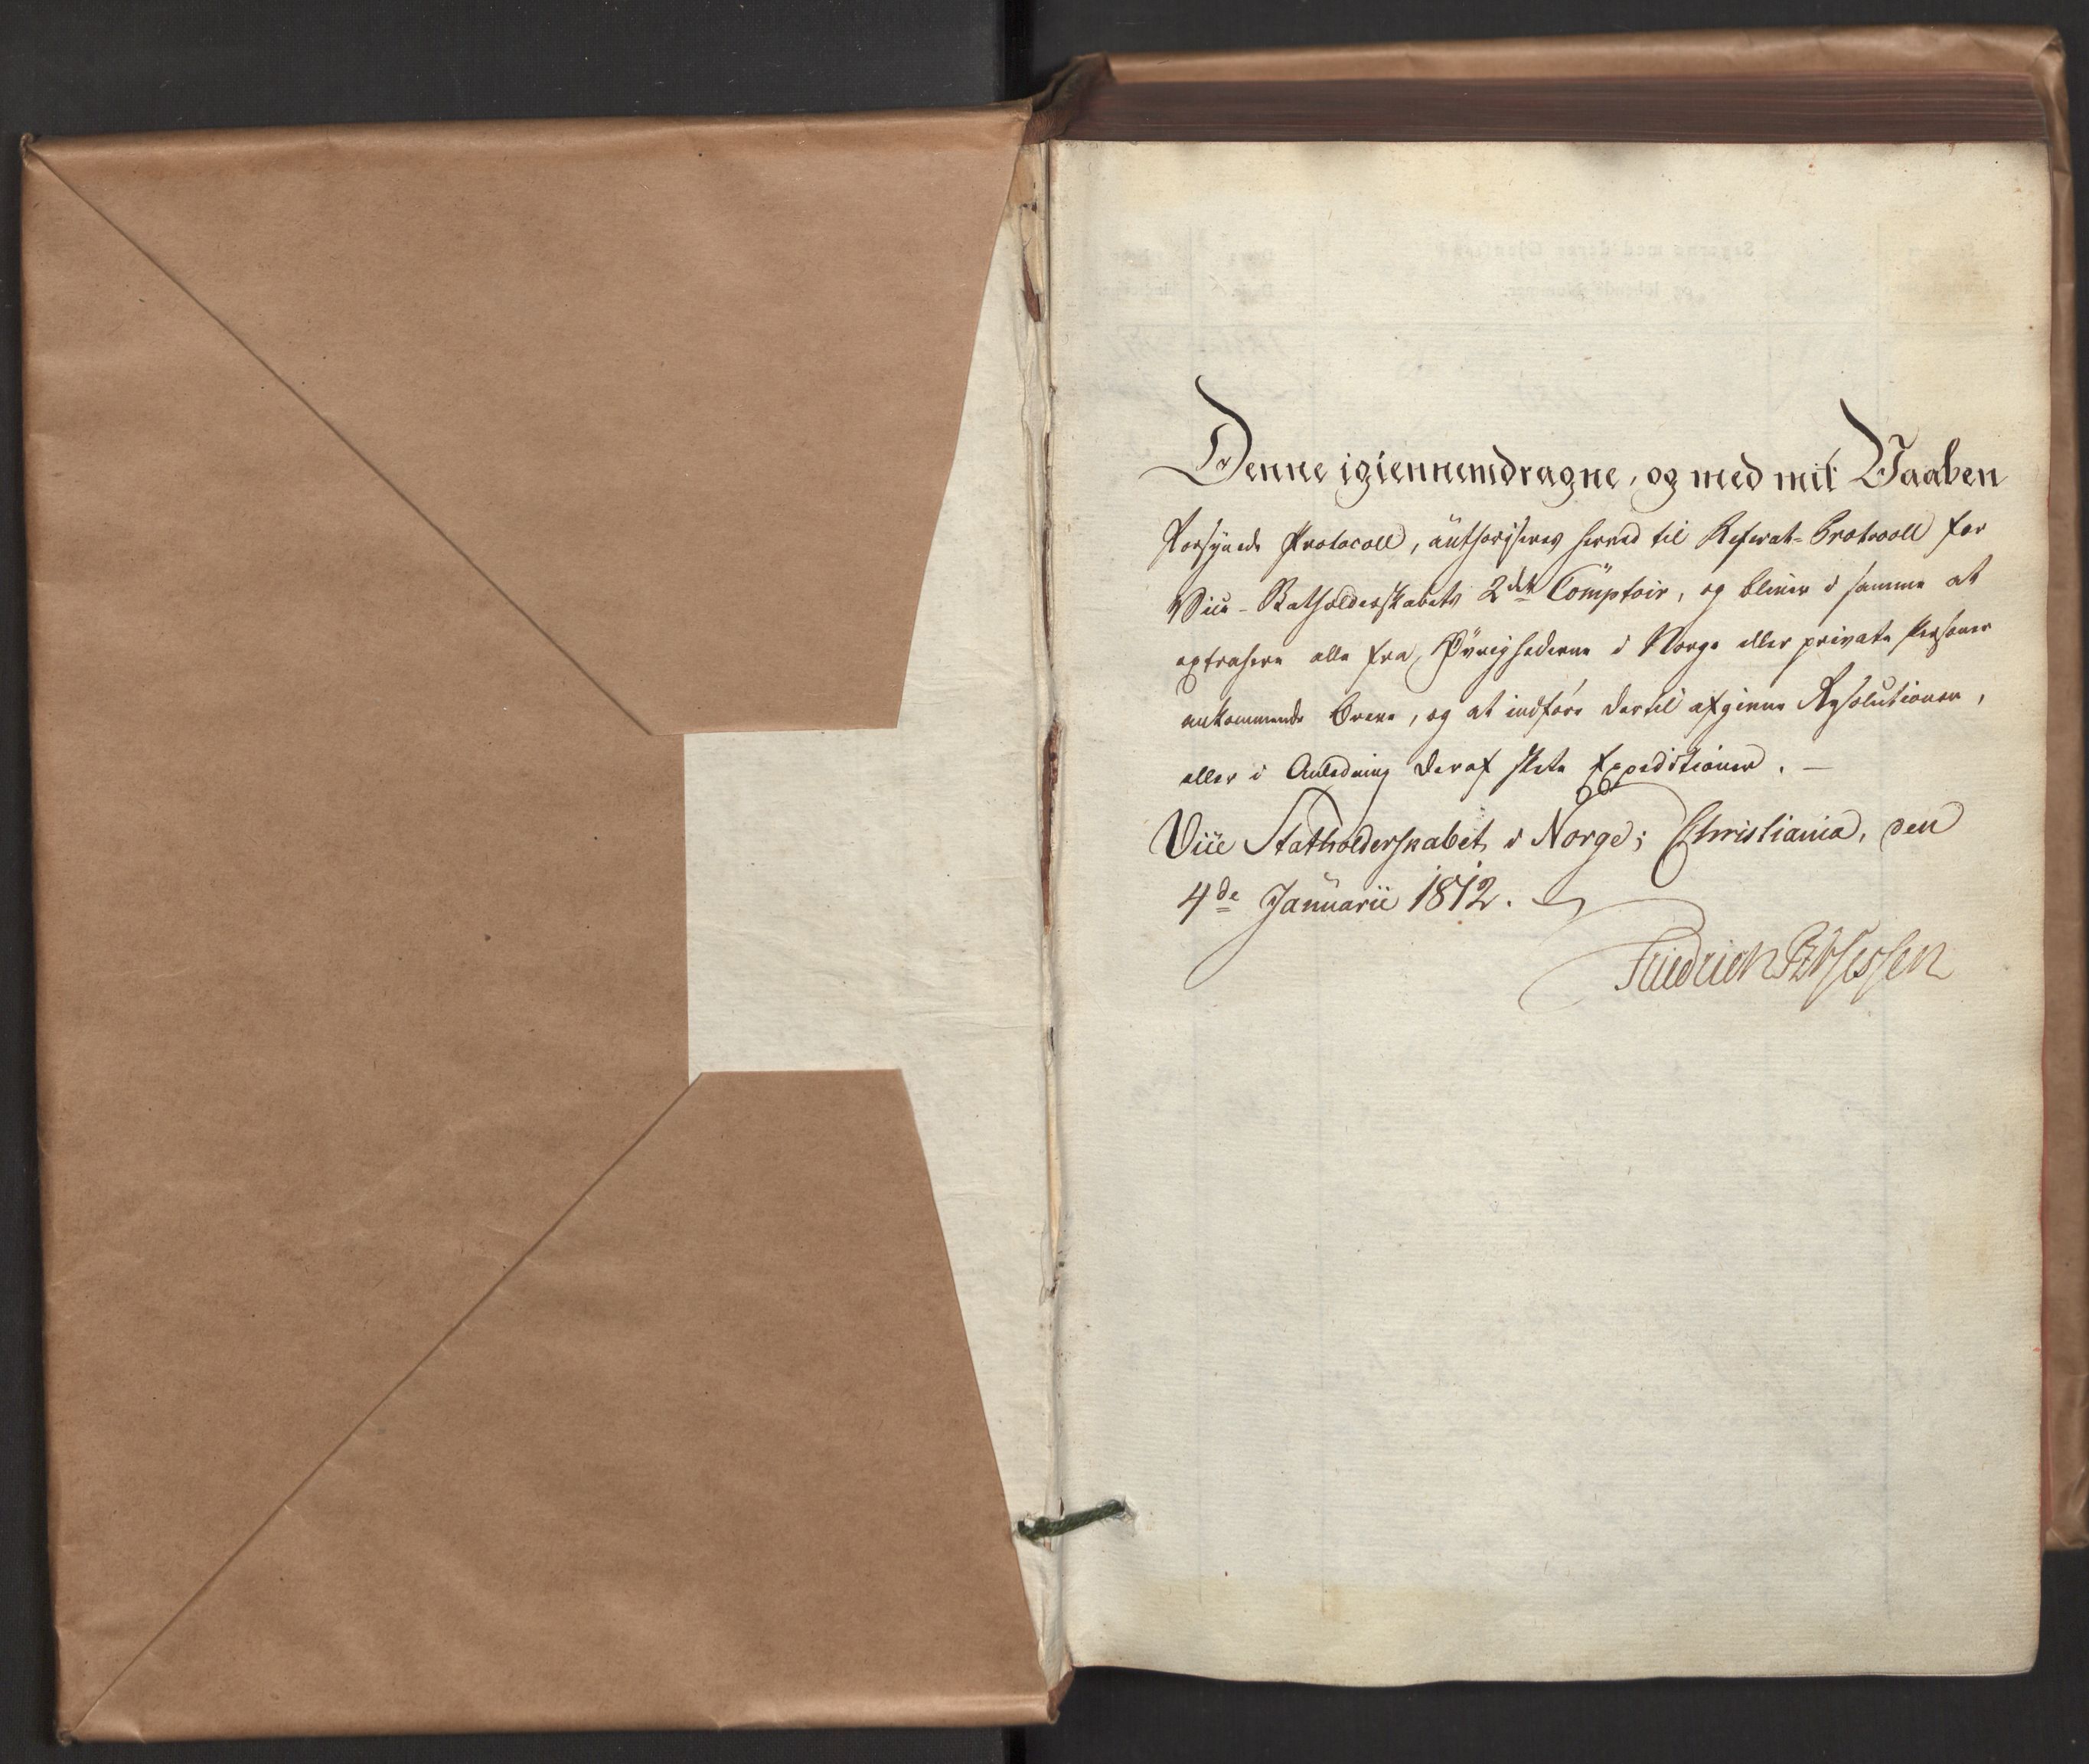 Denne igiennemdragne, og med mit Vaaben
forsynede Protocoll, authoriseres herved til Referat-Protocoll for
Vice-Statholderskabets 2det Comptoir, og bliver i samme at
extrahere alle fra Øvrighederne i Norge eller private Personer
ankommende Breve, og at indføre dertil afgivne Resolutioner,
eller i Anledning deraf skete Expeditioner. —
Vice Statholderskabet i Norge; Christiania, den
4de Januarii 1812.
Friedrich PzvHessen